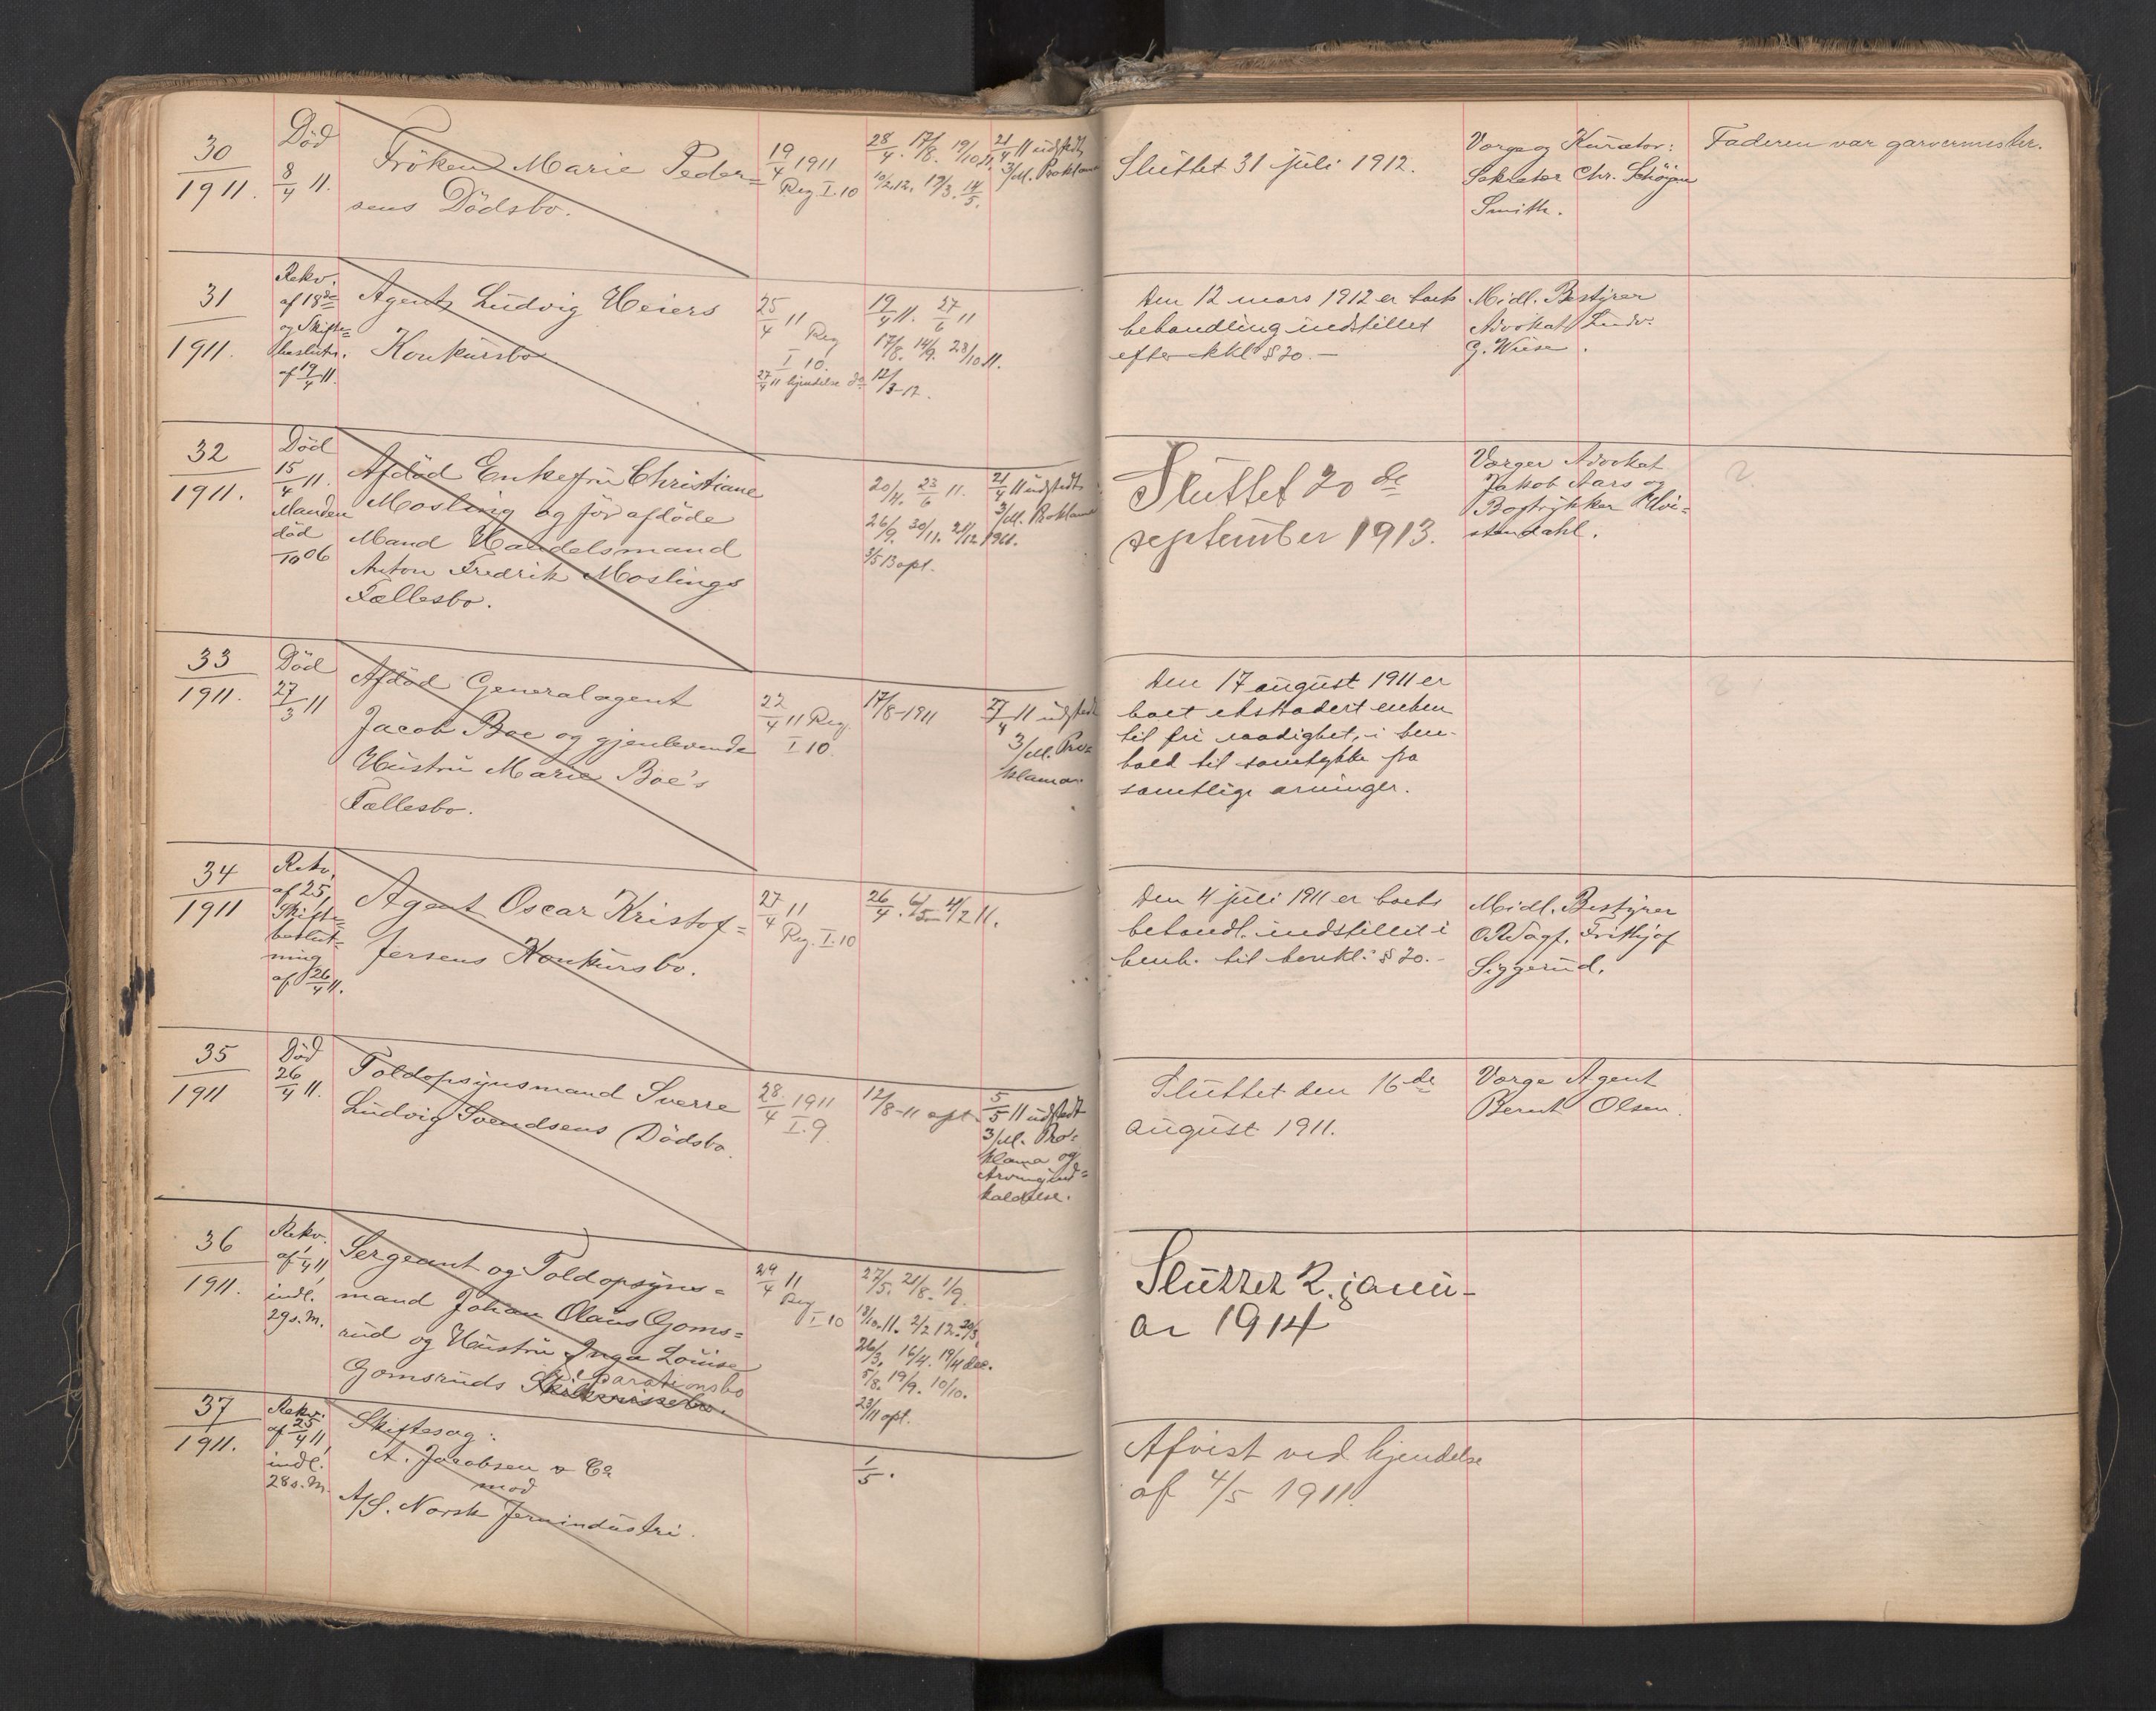 30
1911.
Död
8/4 11.
Fröken Marie Peder=
sens Dödsbo.
19/4 1911
Reg. I. 10
28/4. 17/8. 19/10 11.
10/2 12. 19/3. 14/5.
21/4 11 udstedt
3/M. Proklama
Sluttet 31 juli 1912.
Verge og Kurator:
Sekretær Chr. Schöyen
Smith.
Faderen var garvermester.
31
1911.
Rekv.
af 18de
og Skifte=
beslutn.
af 19/4 11.
Agent Ludvig Heiers
Konkursbo
25/4 11
Reg
I 10.
27/4 11 kjendelse do
19/4 11. 27/6 11
17/8. 14/9. 23/10 11.
12/3-12.
Den 12 mars 1912 er boets
behandling indstillet
efter kkl § 20.—
Midl. Bestyrer
Advokat Ludv.
G. Wiese.
32
1911.
Död
15/4 11.
Manden
död
/10 06
Afdöd Enkefru Christiane
Mosling og för afdöde
Mand Handelsmand
Anton Fredrik Moslings
Fællesbo.
20/4. 23/6 11.
26/9. 30/11. 21/12 1911.
3/5 13 opt.
21/4 11 udstedt
3/M. Proklama
Sluttet 20de
september 1913.
Verger Advokat
Jakob Aars og
Bogtrykker Hvi=
stendahl.
33
1911.
Död
27/3 11
Afdöd Generalagent
Jacob Boe og gjenlevende
Hustru Marie Boe's
Fællesbo.
22/4 11 Reg.
I 10
17/8-1911
27/4 11 udstedt
3/M. Pro=
klama.
Den 17 august 1911 er
boet ekstradert enken
til fri raadighet, i hen-
hold til samtykke fra
samtlige arvinger.
34
1911
Rekv.
af 25,
Skifte=
beslut=
ning
af 26/4 11.
Agent Oscar Kristof=
fersens Konkursbo.
27/4 11
Reg. I. 10
26/4. 6/5 4/7 11.
Den 4 juli 1911 er boets
behandl. indstillet i
henh. til konkl. § 20.-
Midl. Bestyrer
O.R.sagf. Frithjof
Siggerud.
35
1911
Död
26/4 11.
Toldopsynsmand Sverre
Ludvig Svendsens Dödsbo.
28/4 1911
I. 9
12/8-11 opt.
5/5 11 udstedt
3/M. Pro=
klama og
Arvingind=
kaldelse.
Sluttet den 16de
august 1911.
Verge Agent
Bernt Olsen.
36
1911.
Rekv.
af /4 11
indl.
29 s. M.
Sergeant og Toldopsyns=
mand Johan Olaus Goms=
rud og Hustru Inga Louise
Gomsruds Separationsbo
29/4 11
Reg
I 10
27/5. 21/8. 1/9.
18/10. 11. 2/2 12. 20/3.
26/3. 16/4. 19/4 dec.
5/8. 19/9. 10/10.
23/11 opt.
Sluttet 2. janu-
ar 1914
37
1911.
Rekv.
af 25/4 11
indl.
28 s. M.
Skiftesag:
A. Jacobsen & Co
mod
A/S. Norsk Jernindustri.
1/5.
Afvist ved kjendelse
af 4/5 1911.